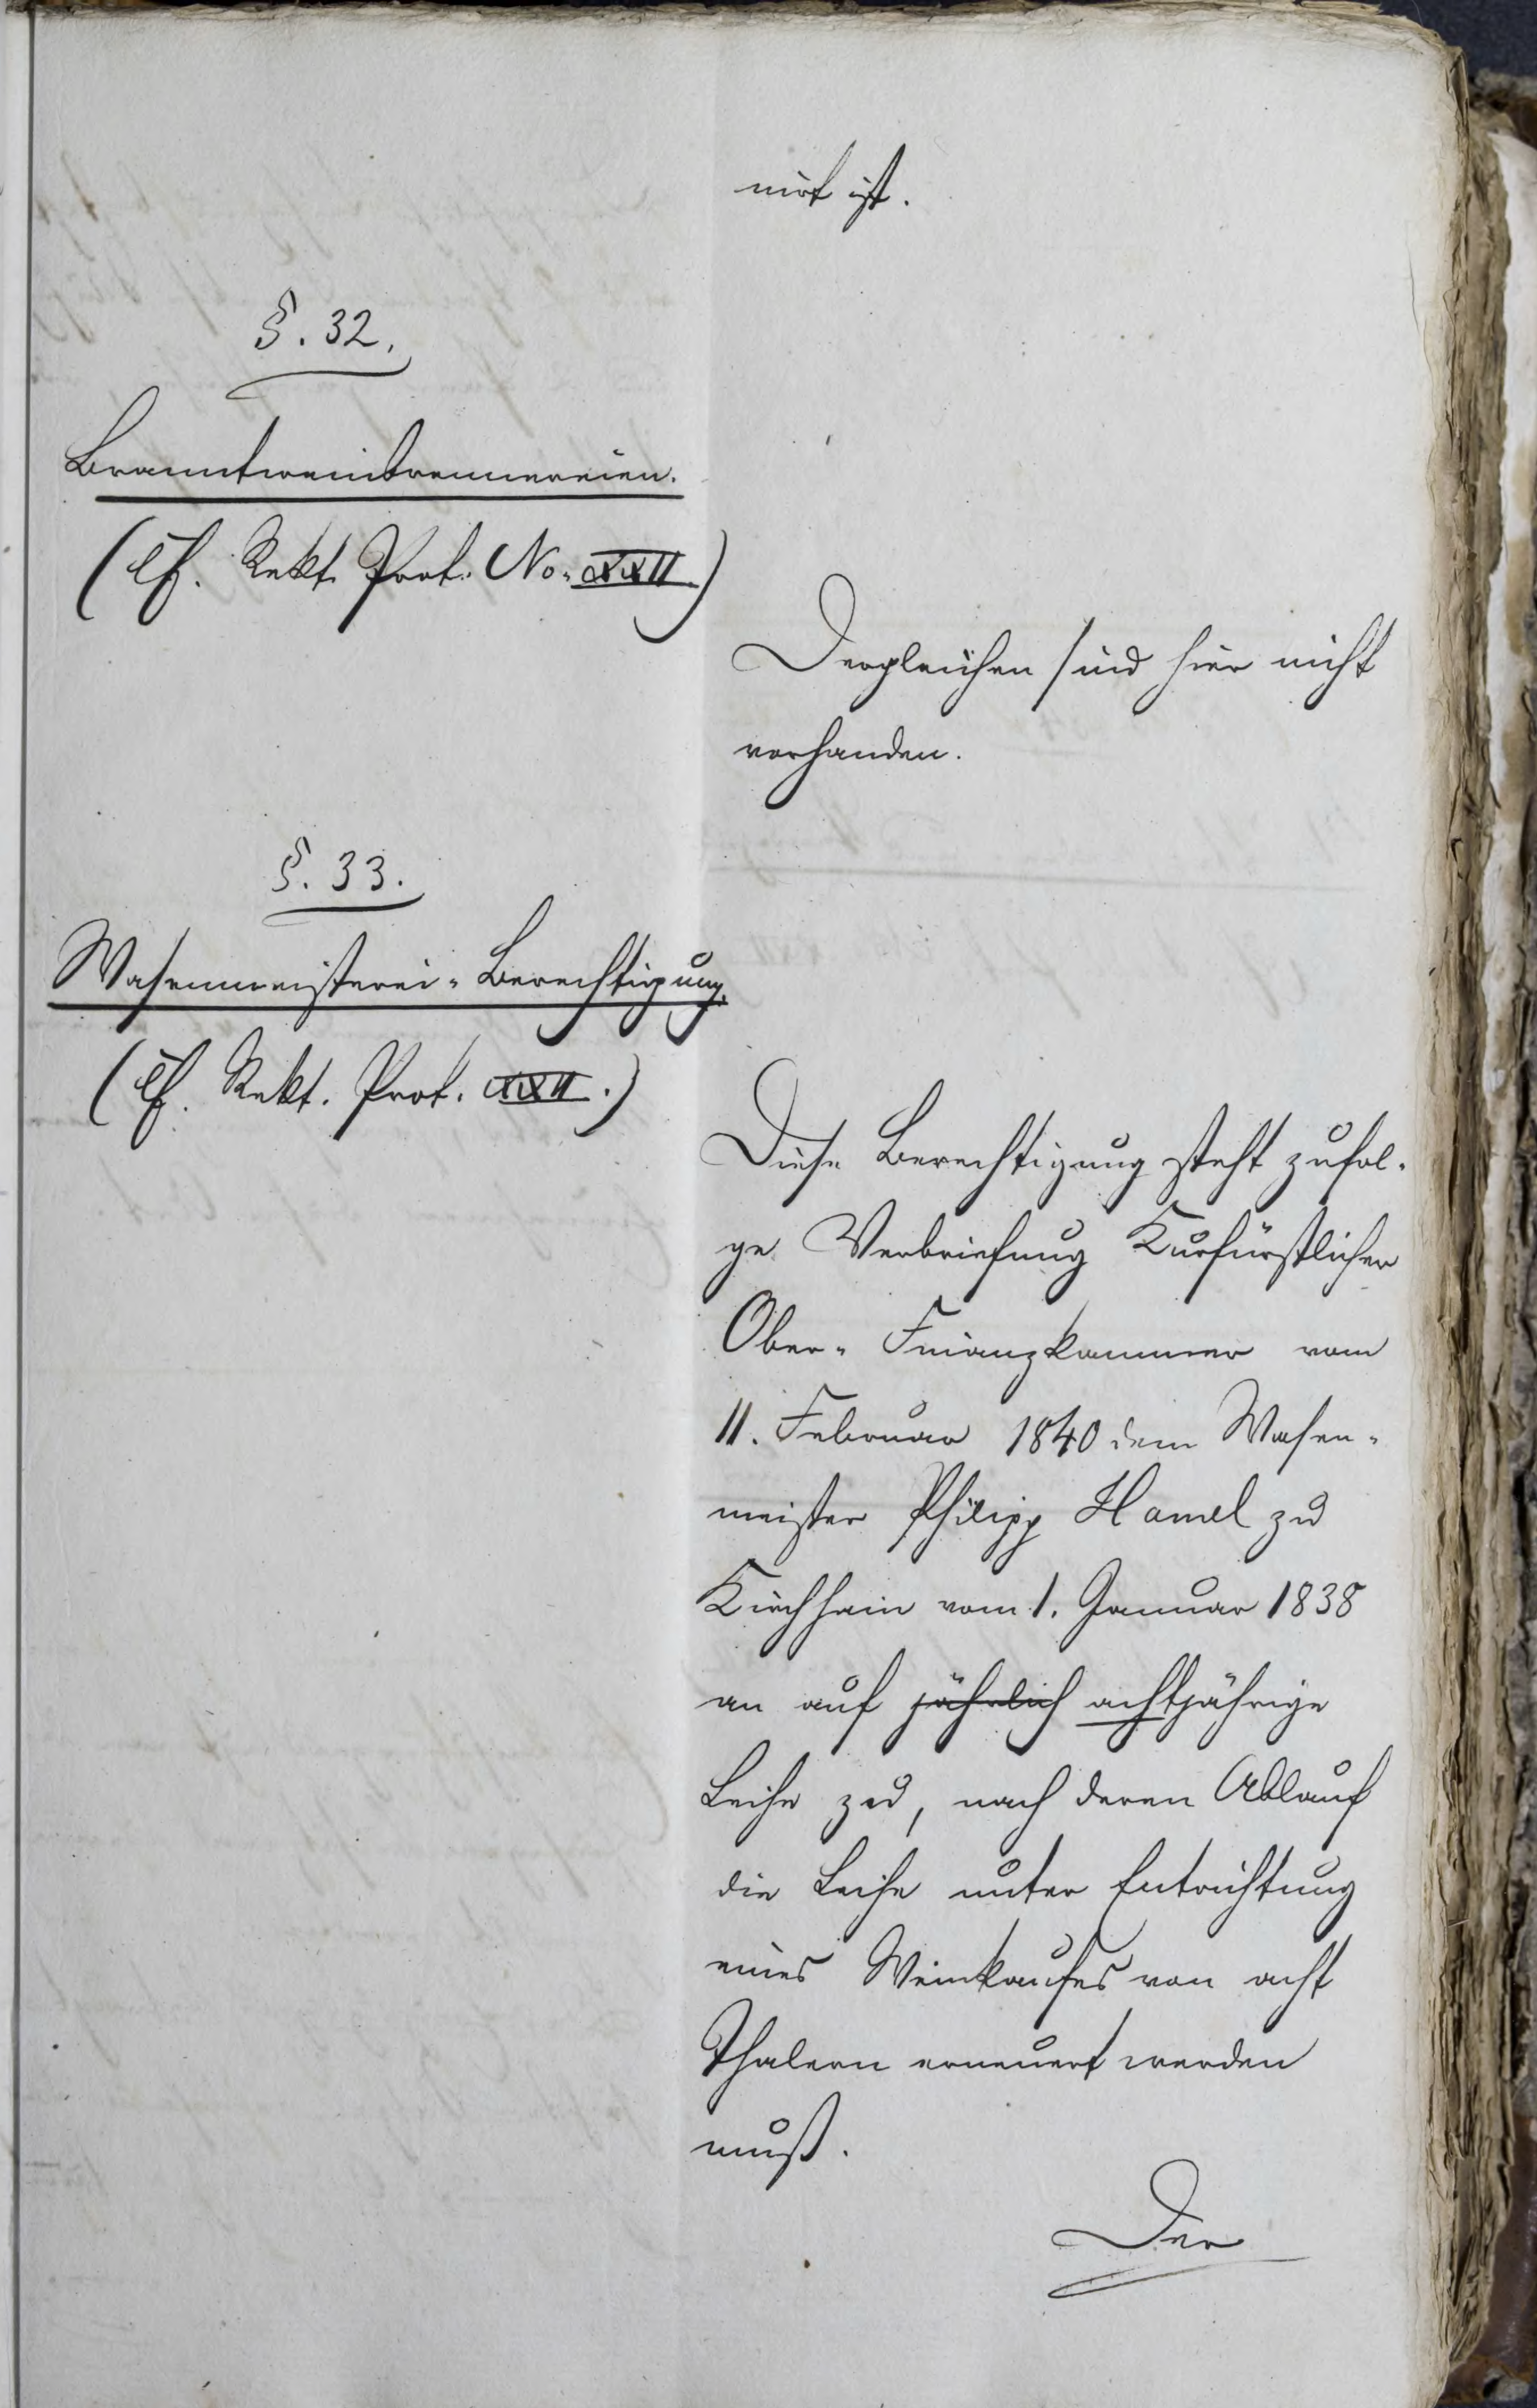 nirt ist.
§. 32.
Branntweinbrennereien.
(cf. Rekt. Prot. No. XXII.)
Dergleichen sind hier nicht
vorhanden.
§. 33.
Wasenmeisterei-Berechtigung.
(cf. Rekt. Prot. XXII.)
Diese Berechtigung steht zufol-
ge Verbriefung Kurfürstlicher
Ober-Finanzkammer vom
11. Februar 1840 dem Wasen-
meister Philipp Hamel zu
Kirchhain vom 1. Januar 1838
an auf jährlich achtjährige
Leihe zu, nach deren Ablauf
die Leihe unter Entrichtung
eines Weinkaufes von acht
Thalern erneuert werden
muß.
Der